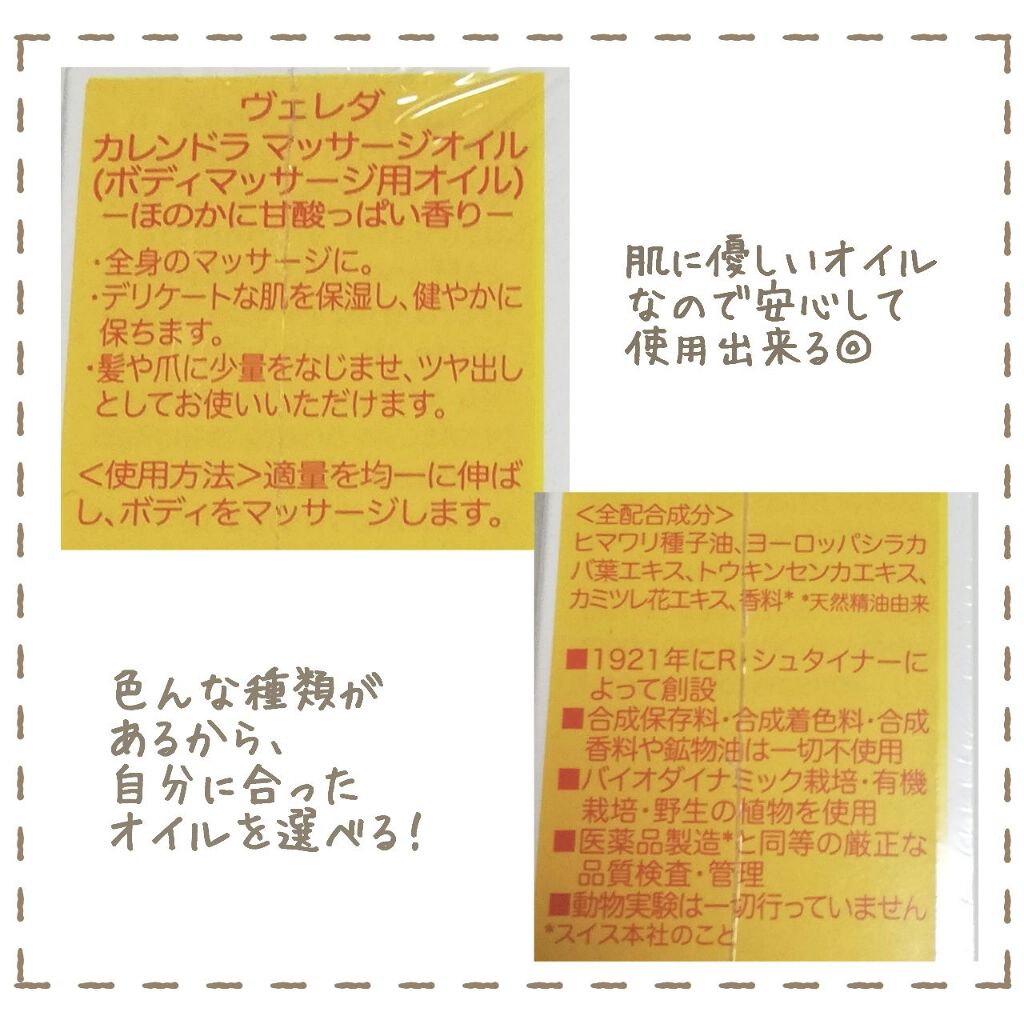 ヴェレダ
カレンドラ マッサージオイル
(ボディマッサージ用オイル)
ーほのかに甘酸っぱい香りー
・全身のマッサージに。
・デリケートな肌を保湿し、健やかに
保ちます。
・髪や爪に少量をなじませ、ツヤ出し
としてお使いいただけます。
<使用方法>適量を均一に伸ば
し、ボディをマッサージします。
肌に優しいオイル
なので安心して
使用出来る◎
<全配合成分>
ヒマワリ種子油、ヨーロッパシラカ
バ葉エキス、トウキンセンカエキス、
カミツレ花エキス、香料* *天然精油由来
■1921年にR・シュタイナーに
よって創設
■合成保存料・合成着色料・合成
香料や鉱物油は一切不使用
■バイオダイナミック栽培・有機
栽培・野生の植物を使用
■医薬品製造*と同等の厳正な
品質検査・管理
■動物実験は一切行っていません
*スイス本社のこと
色んな種類が
あるから、
自分に合った
オイルを選べる!